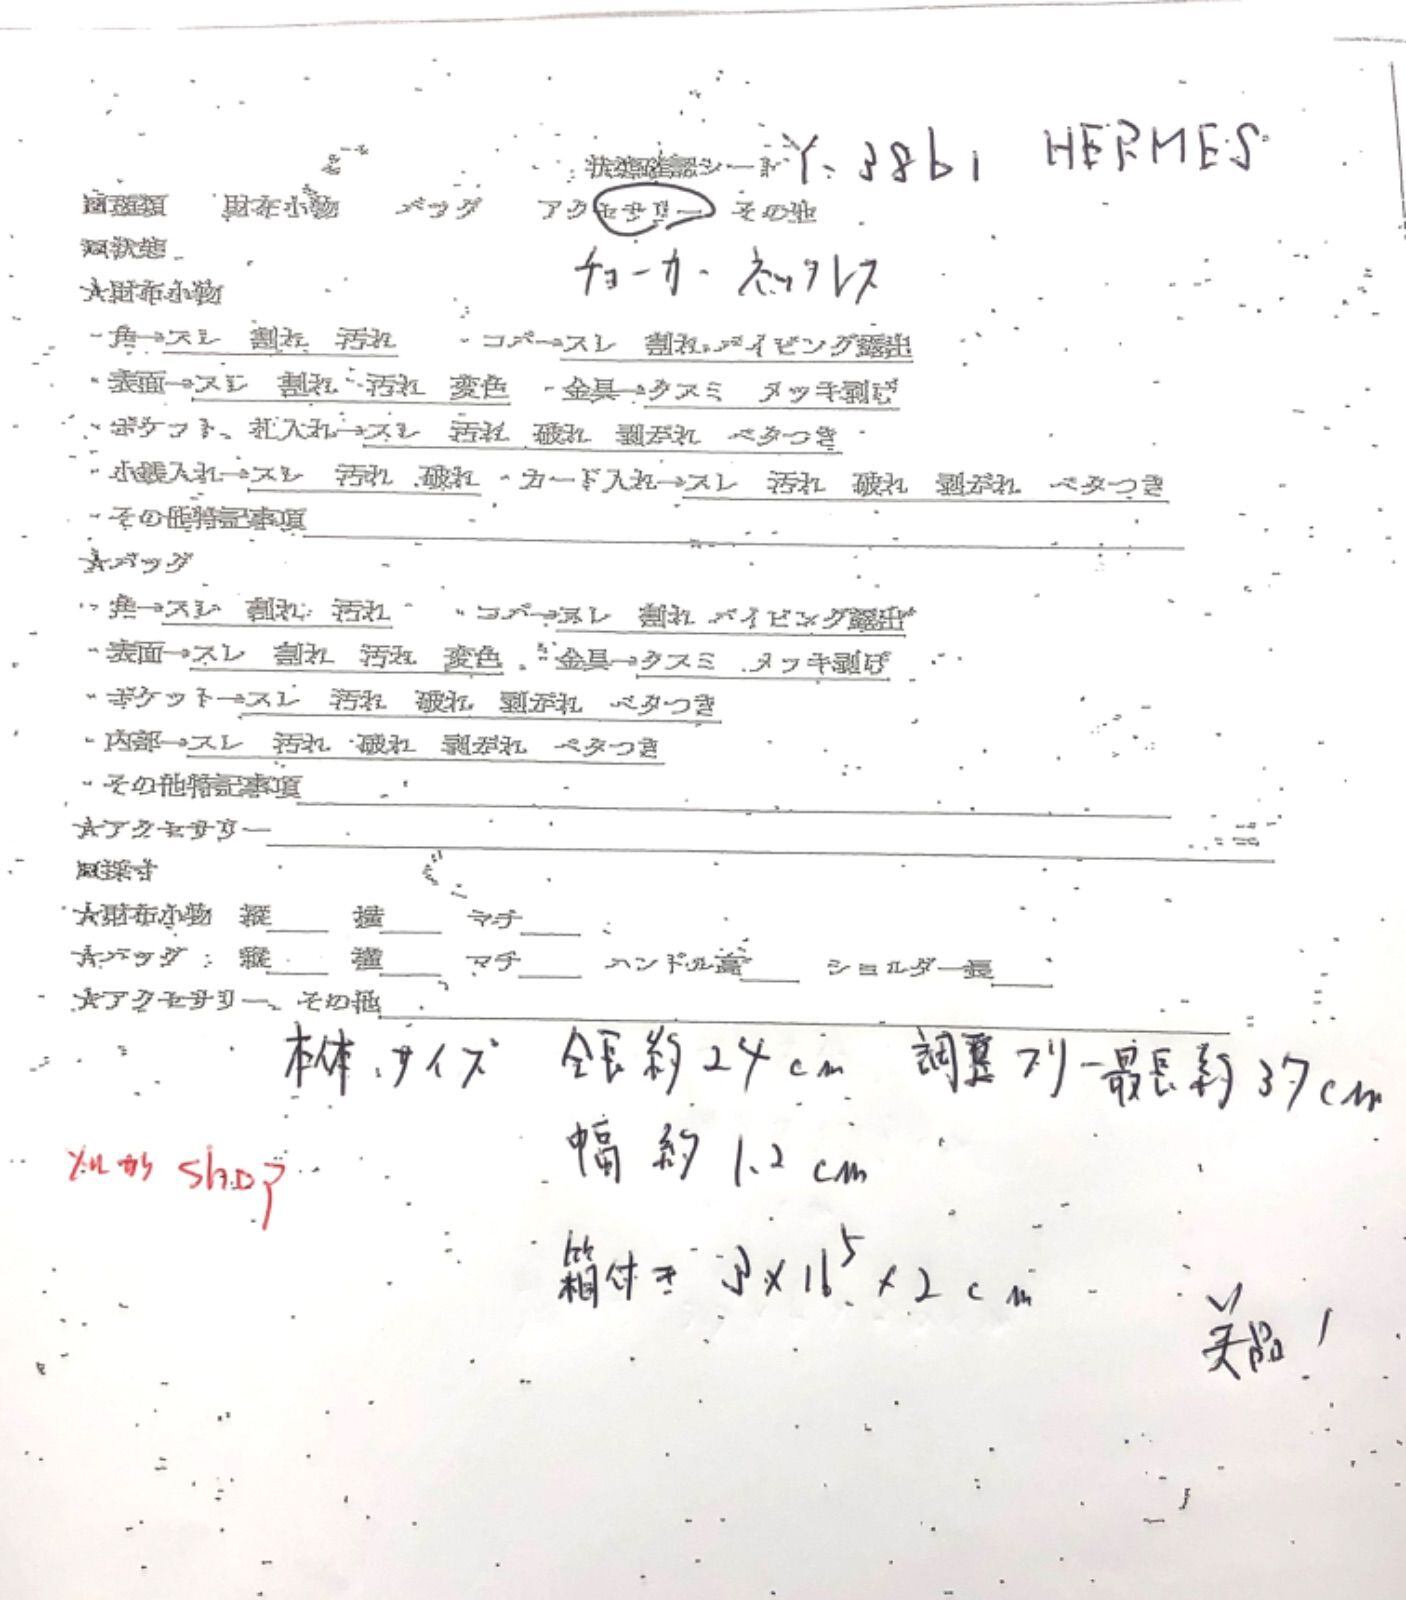 状態確認シート Y-3861 HERMES
■種類 財布小物 バッグ アクセサリー その他
■状態
チョーカー ネックレス
★財布小物
・角→スレ 割れ 汚れ ・コバ→スレ 割れ パイピング露出
・表面→スレ 割れ 汚れ 変色 ・金具→クスミ メッキ剥げ
・ポケット、札入れ→スレ 汚れ 破れ 剥がれ ベタつき
・小銭入れ→スレ 汚れ 破れ ・カード入れ→スレ 汚れ 破れ 剥がれ ベタつき
・その他特記事項
★バッグ
・角→スレ 割れ 汚れ ・コバ→スレ 割れ パイピング露出
・表面→スレ 割れ 汚れ 変色 ・金具→クスミ メッキ剥げ
・ポケット→スレ 汚れ 破れ 剥がれ ベタつき
・内部→スレ 汚れ 破れ 剥がれ ベタつき
・その他特記事項
★アクセサリー
■採寸
★財布小物 縦 横 マチ
★バッグ 縦 横 マチ ハンドル高 ショルダー長
★アクセサリー、その他
本体サイズ 全長約24cm 調整フリー最長約37cm
幅約1.2cm
メルカリ shop
箱付き 3×16⁵×2cm
美品!